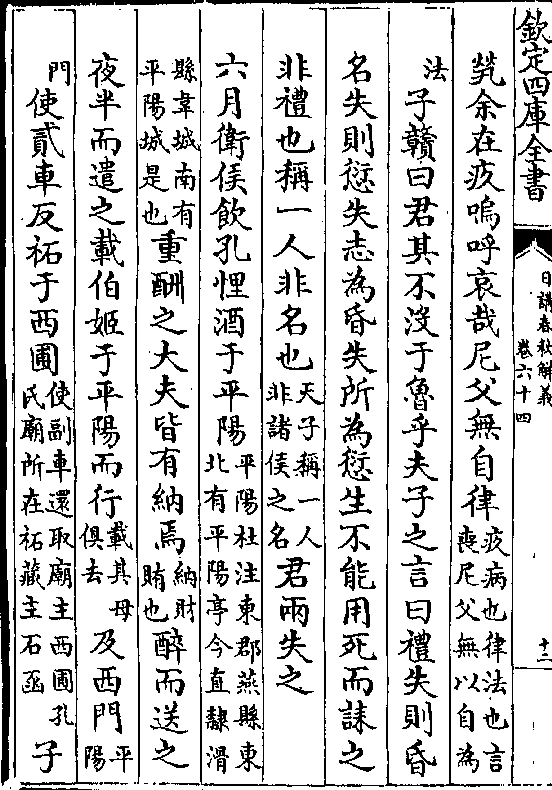 欽定四庫全書
日講春秋解義
卷六十四
十二
㷀余在疚嗚呼哀哉尼父無自律疚病也律法也言喪尼父無以自為
法子贛曰君其不沒于魯乎夫子之言曰禮失則昏
名失則愆失志為昏失所為愆生不能用死而誄之
非禮也稱一人非名也天子稱一人非諸侯之名君兩失之
六月衛侯飲孔悝酒于平陽平陽杜注東郡燕縣東北有平陽亭今直隸滑
縣韋城南有平陽城是也重酬之大夫皆有納焉納財賄也醉而送之
夜半而遣之載伯姬于平陽而行載其母俱去及西門平陽
門使貳車反祏于西圃使副車還取廟主西圃孔氏廟所在祏藏主石函子